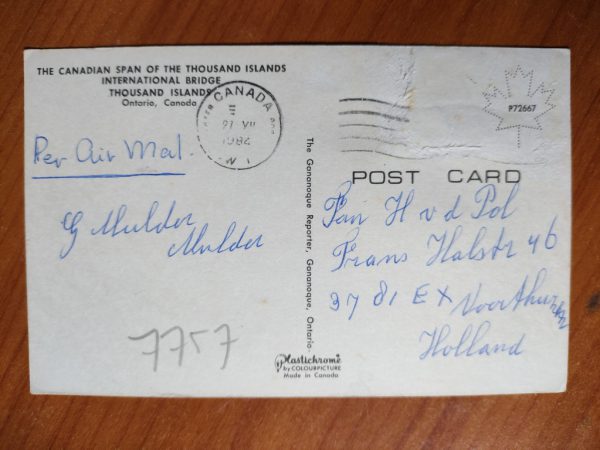 THE CANADIAN SPAN OF THE THOUSAND ISLANDS
INTERNATIONAL BRIDGE
THOUSAND ISLANDS
Ontario, Canada
CANADA
VII
1984
P72667
POST CARD
Per Air Mal.
G Mulder
Mulder
Fam H v d Pol
Frans Halstr 46
3781 EX Voorthuizen
Holland
7757
The Gananoque Reporter, Gananoque, Ontario
Plastichrome
by COLOURPICTURE
Made in Canada